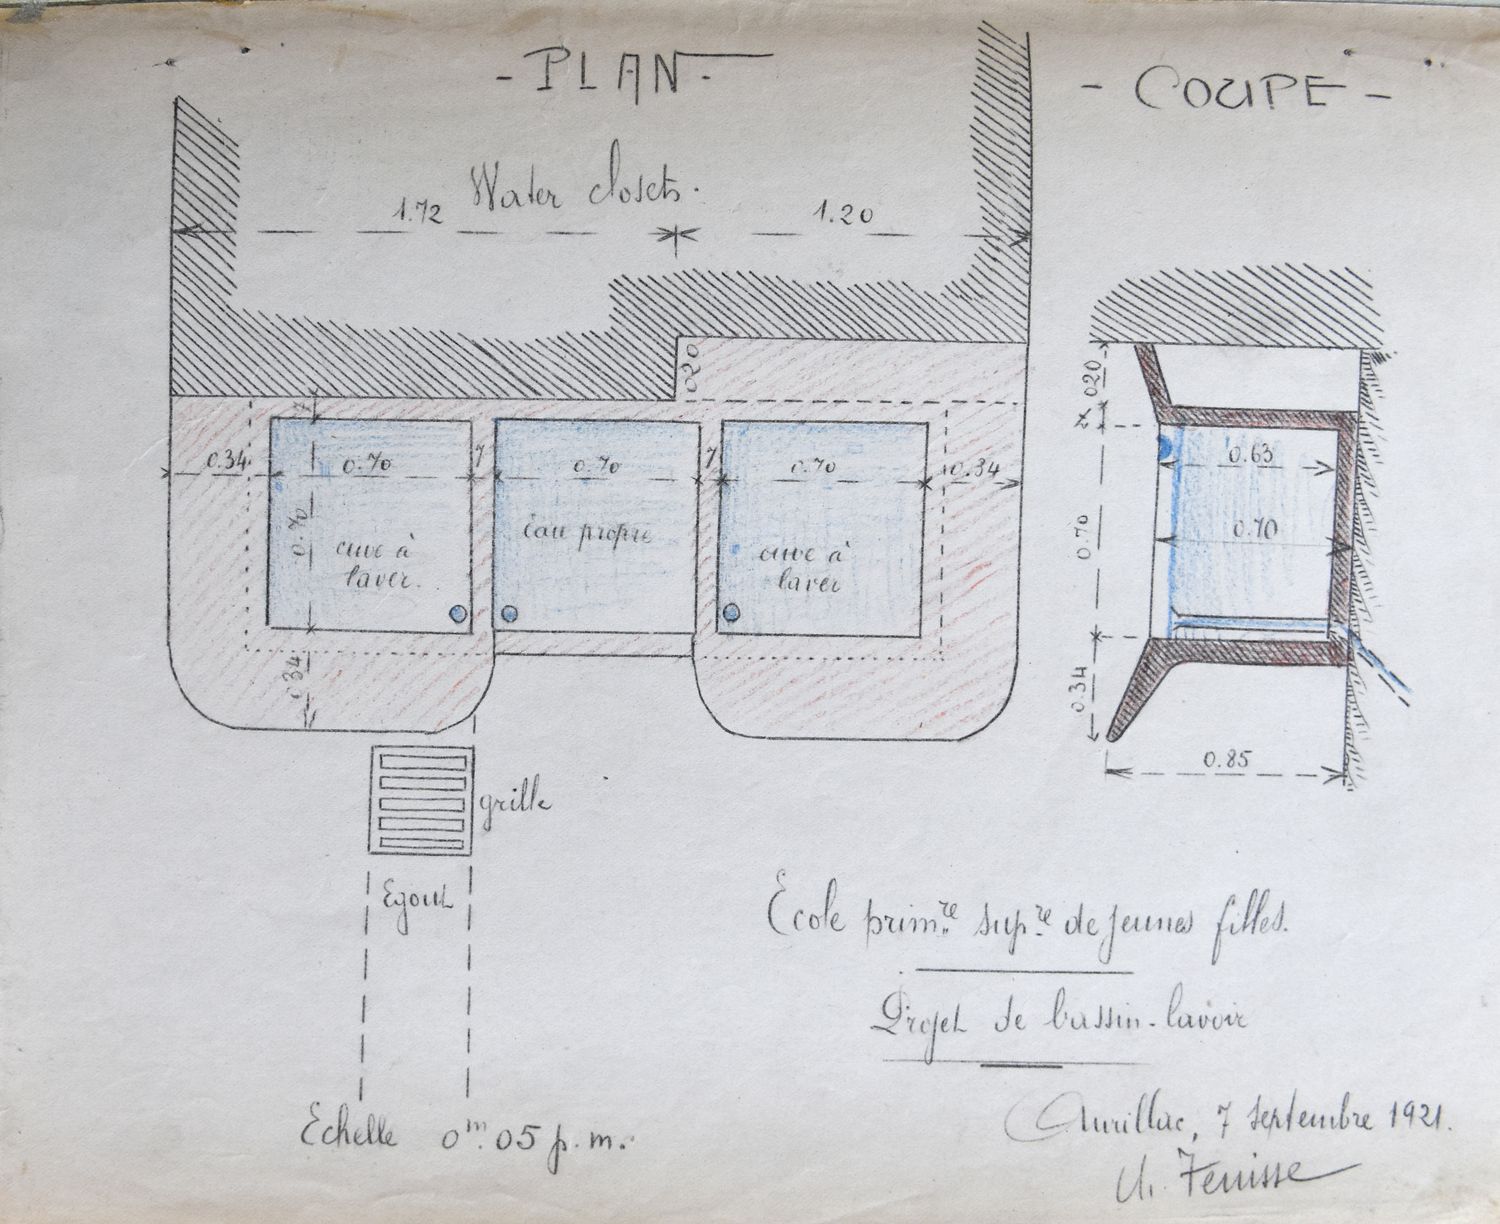 - PLAN -
- COUPE -
Water closets.
1.72
1.20
0.20
0.34
0.70
7
0.70
7
0.70
0.34
0.70
cuve à
laver.
eau propre
cuve à
laver
0.34
grille
Egout
Echelle 0m.05 p.m.
0.20
7
0.63
0.70
0.70
0.34
0.85
École prim.re sup.re de jeunes filles.
Projet de bassin-lavoir
Aurillac, 7 septembre 1921.